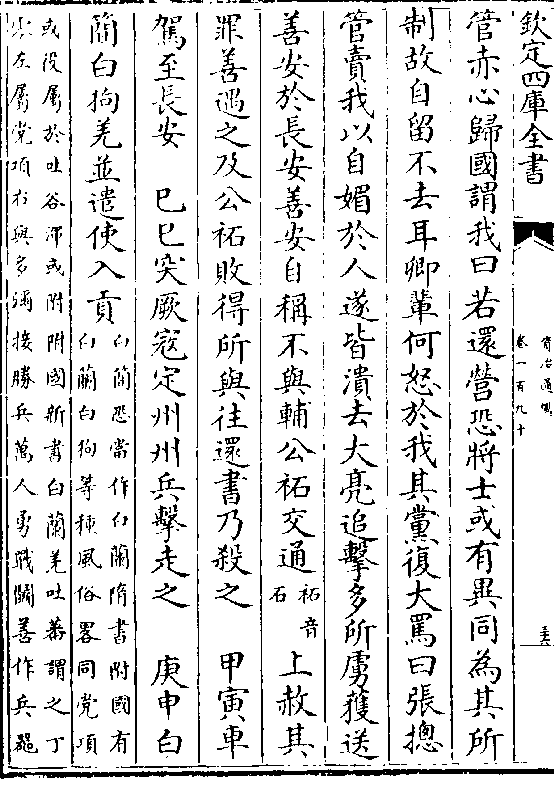 欽定四庫全書
資治通鑑
卷一百九十
管赤心歸國謂我曰若還營恐將士或有異同為其所
制故自留不去耳卿輩何怒於我其黨復大罵曰張摠
管賣我以自媚於人遂皆潰去大亮追擊多所虜獲送
善安於長安善安自稱不與輔公祏交通
祏音
石
上赦其
罪善遇之及公祏敗得所與往還書乃殺之　甲寅車
駕至長安　己巳突厥寇定州州兵擊走之　庚申白
蕳白狗羌並遣使入貢
白蕳恐當作白蘭隋書附國有
白蘭白狗等種風俗畧同党項
或役屬於吐谷渾或附附國新書白蘭羌吐蕃謂之丁
左屬党項右與多彌接勝兵萬人勇戰鬭善作兵器